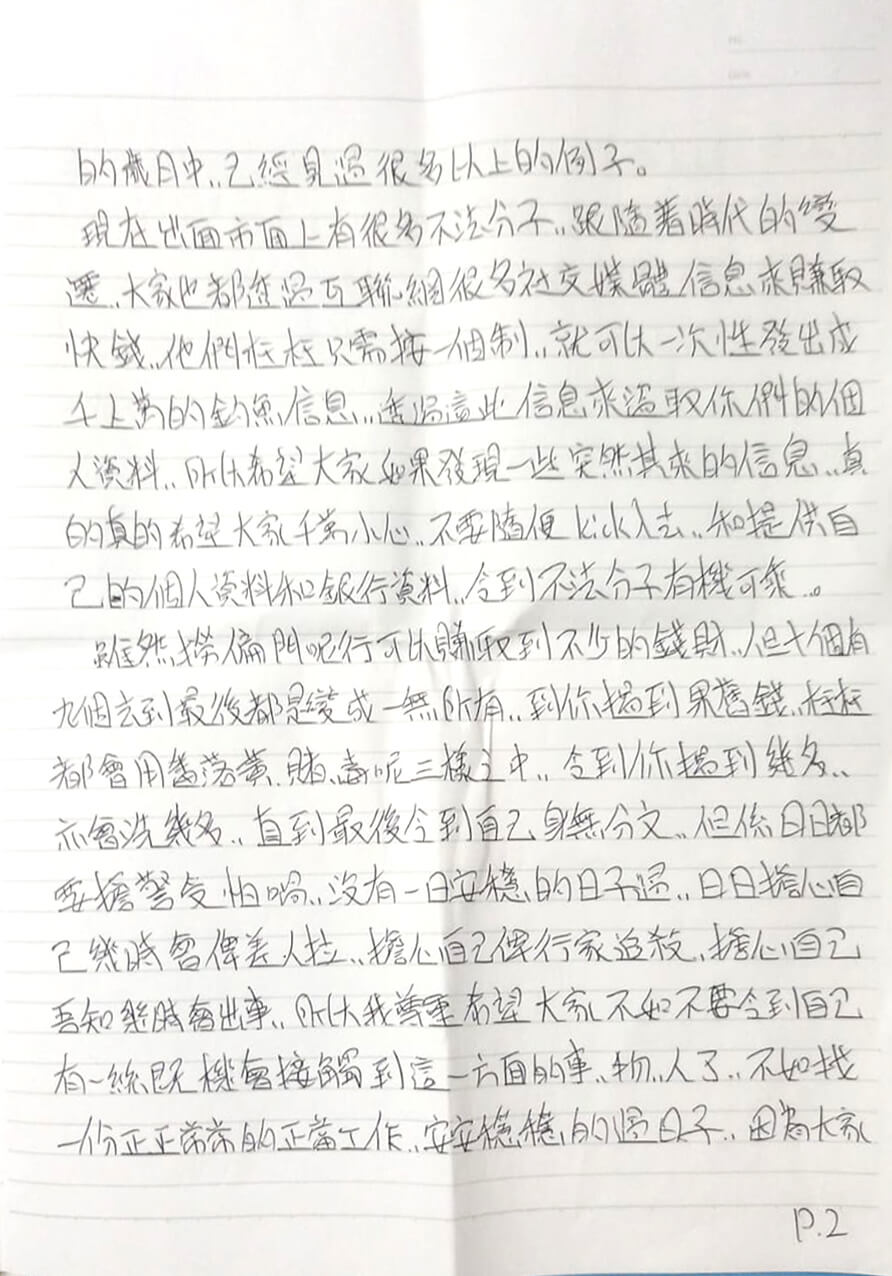 的歲月中，已經見過很多以上的例子。
現在出面市面上有很多不法分子，跟隨著時代的變
遷，大家也都透過互聯網很多社交媒體信息來賺取
快錢，他們往往只需按一個制，就可以一次性發出成
千上萬的釣魚信息，透過這些信息來盜取你們的個
人資料，所以希望大家如果發現一些突然其來的信息，真
的真的希望大家千萬小心，不要隨便kick入去，和提供自
己的個人資料和銀行資料，令到不法分子有機可乘。
雖然撈偏門呢行可以賺取到不少的錢財，但十個有
九個去到最後都是變成一無所有，到你搵到果舊錢，往往
都會用番落黃、賭、毒呢三樣之中，令到你搵到幾多，
亦會洗幾多，直到最後令到自己身無分文，但係日日都
要擔驚受怕喎，沒有一日安穩的日子過，日日擔心自
己幾時會俾差人拉，擔心自己俾行家追殺，擔心自己
吾知幾時會出事，所以我尊重希望大家不如不要令到自己
有一絲既機會接觸到這一方面的事，物，人了，不如找
一份正正常常的正當工作，安安穩穩的過日子，因為大家
P.2